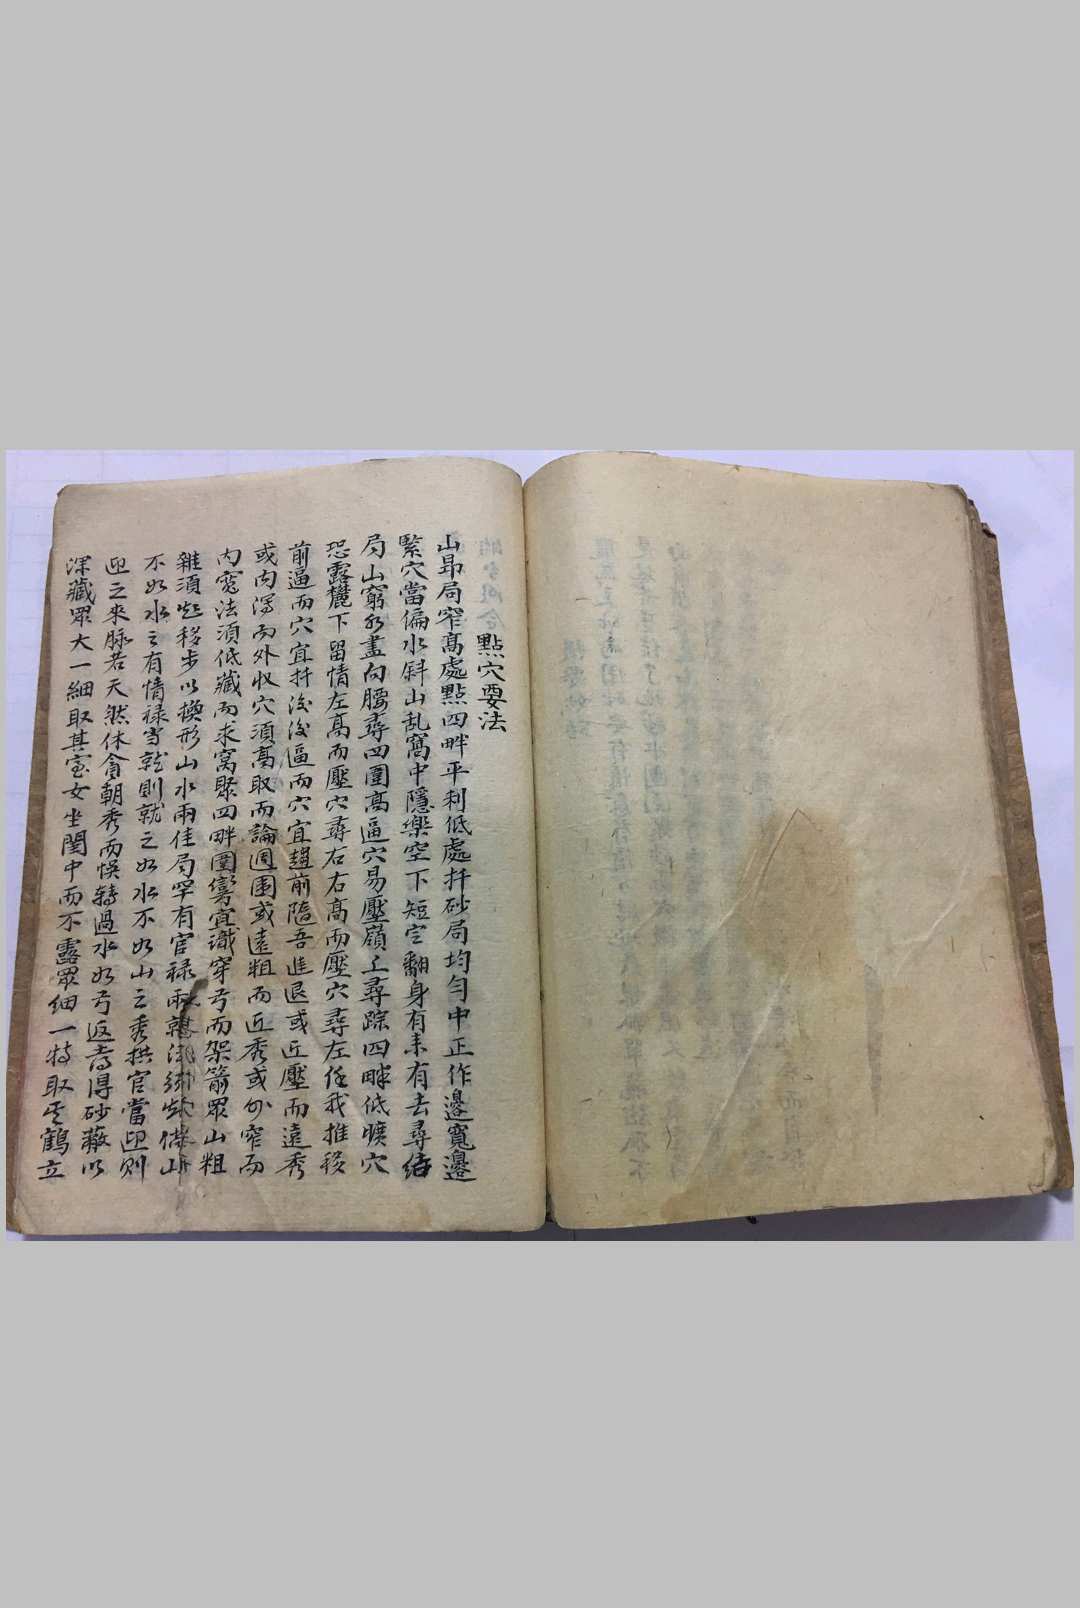 點穴要法
山昻局窄髙處點四畔平利低處扦砂局均勻中正作邉寬邉
緊穴當偏水斜山乱窩中隱樂空下短定翻身有来有去尋结
局山窮水盡向腰尋四圍髙逼穴易壓嶺上尋踪四畔低曠穴
恐露麓下留情左髙而壓穴尋右右髙而壓穴尋左任我推移
前逼而穴宜扦後後逼而穴宜趨前隨吾進退或近壓而遠秀
或内瀉而外收穴須髙取而論週圍或遠粗而近秀或外窄而
内寬法須低藏而求窝聚四畔圍宜識穿弓而架箭眾山粗
雜須移步以换形山水兩佳局罕有官禄
不如水之有情禄當就則就之如水不如山之秀拱官當迎則
迎之來脉若天然休貪朝秀而悞轉過水如弓返喜得砂蔽以
深藏眾大一細取其室女坐閨中而不露眾细一特取鶴立